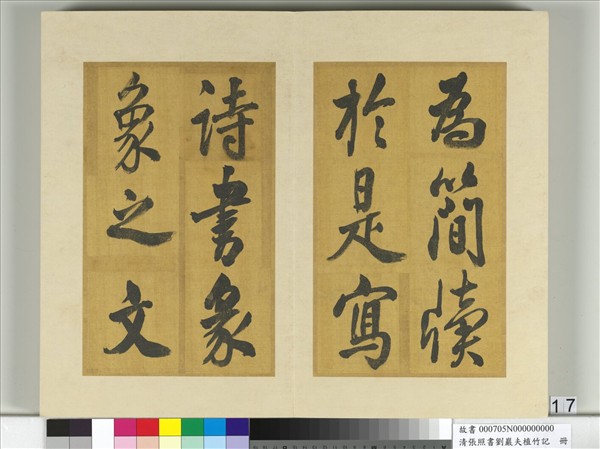 為簡牘
於是寫
詩書彖
象之文
17
故書 000705N000000000
清張照書劉巖夫植竹記 冊